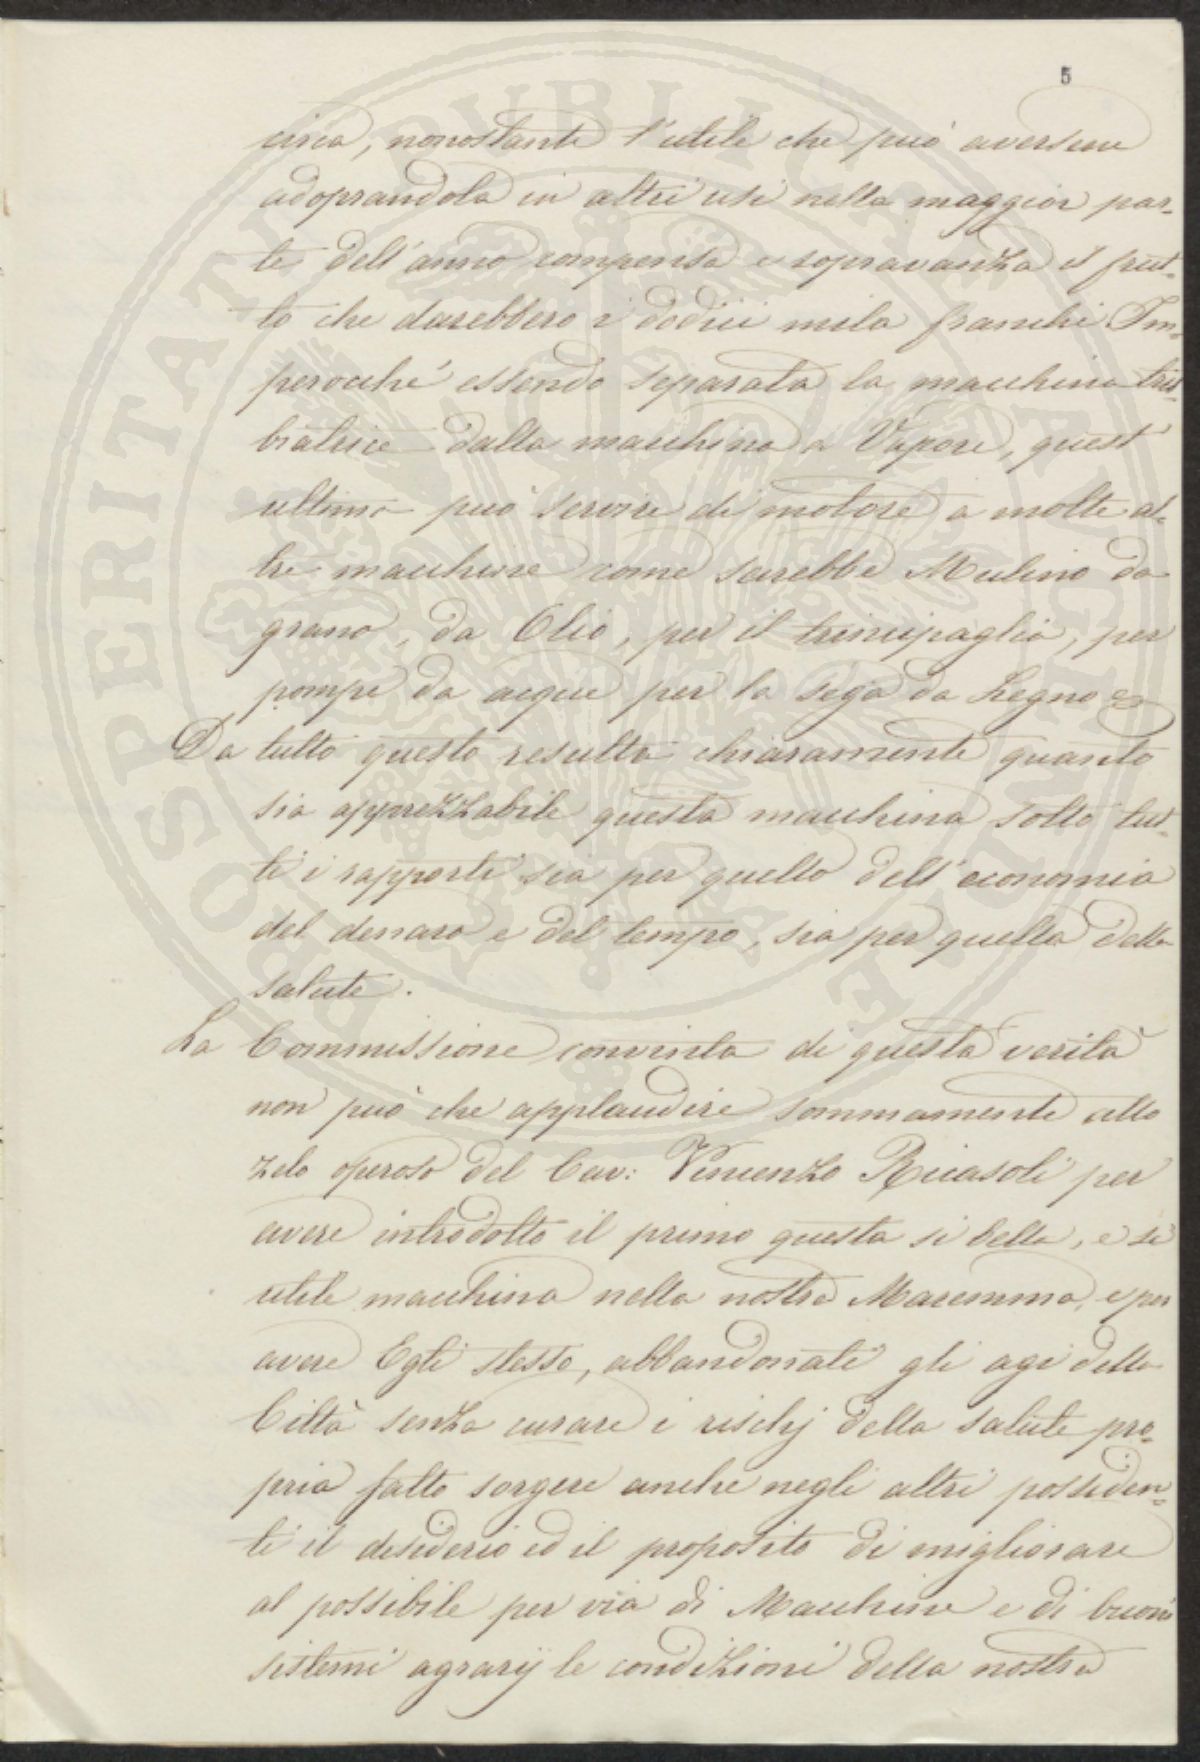 5
circa, nonostante l'utile che può aversene
adoprandola in altri usi nella maggior par-
te dell'anno compensa e sopravanza il frut-
to che darebbero i dodici mila franchi Im-
perocché essendo separata la macchina treb-
biatrice dalla macchina a Vapore, quest'
ultima può servire di motore a molte al-
tre macchine come sarebbe Mulino da
grano, da Olio, per il trinciapaglia, per
pompe da acque per la sega da Legno
Da tutto questo resulta chiaramente quanto
sia apprezzabile questa macchina sotto tut-
ti i rapporti sia per quello dell'economia
del denaro e del tempo, sia per quella della
salute.
La Commissione convinta di questa verità
non può che applaudire sommamente allo
zelo operoso del Cav: Vincenzo Ricasoli per
avere introdotto il primo questa si bella, e si
utile macchina nella nostra Maremma, e per
avere Egli stesso, abbandonati gli agi della
Città senza curare i rischj della salute pro-
pria fatto sorgere anche negli altri possiden-
ti il desiderio ed il proposito di migliorare
al possibile per via di Macchine e di buoni
sistemi agrarij le condizioni della nostra
PROSPERITATI PUBLICAE